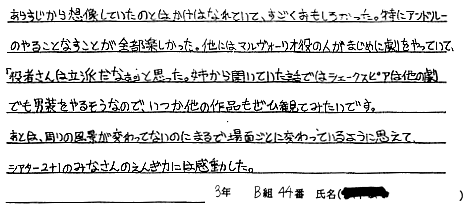 あらすじから想像していたのとはかけはなれていて、すごくおもしろかった。特にアンドルー
のやることなすことが全部楽しかった。他にはマルヴォーリオ役の人がまじめに劇をやっていて、
「役者さんは立派だなぁ」と思った。姉から聞いていた話ではシェークスピアは他の劇
でも男装をやるそうなので、いつか他の作品もぜひ観てみたいです。
あとは、周りの風景が変わってないのにまるで場面ごとに変わっているように思えて、
シアター2+1のみなさんのえんぎ力には感動した。
3年 B組 44番 氏名( )